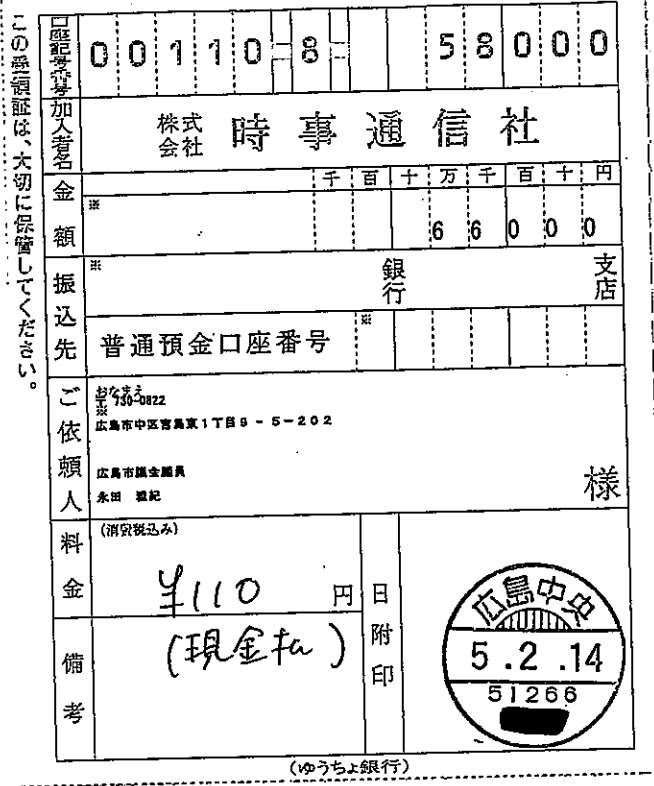 この受領証は、大切に保管してください。
口座記号番号
00110-8- 58000
加入者名
株式会社 時事通信社
金額
千 百 十 万 千 百 十 円
※
6 6 0 0 0
振込先
※
銀行
支店
普通預金口座番号
※
ご依頼人
おなまえ
〒730-0822
※
広島市中区吉島東1丁目9-5-202
広島市議会議員
永田 雅紀
様
料金
(消費税込み)
¥110 円
備考
(現金払)
日附印
広島中央
5.2.14
51266
(ゆうちょ銀行)